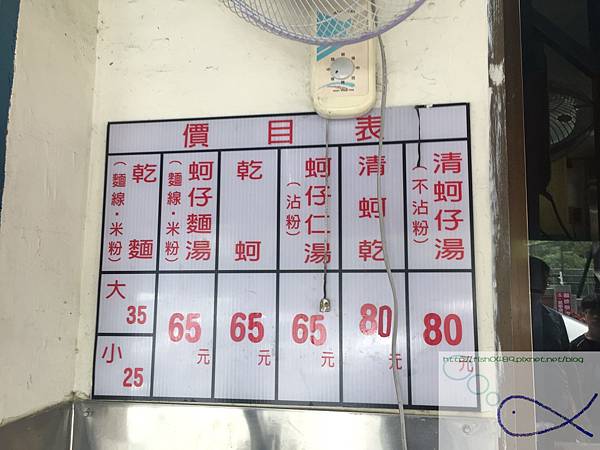 價目表
清蚵仔湯
(不沾粉)
80
元
清蚵乾
80
元
蚵仔仁湯
(沾粉)
65
元
乾蚵
65
元
蚵仔麵湯
(麵線·米粉)
65
元
乾麵
(麵線·米粉)
大
35
小
25
http://fish0489.pixnet.net/blog